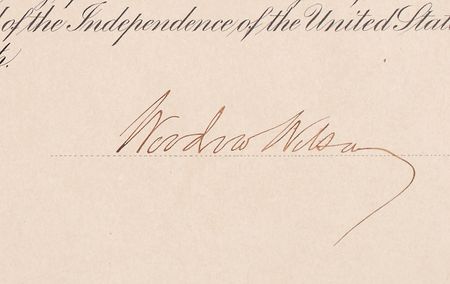 of the Independence of the United
Woodrow Wilson